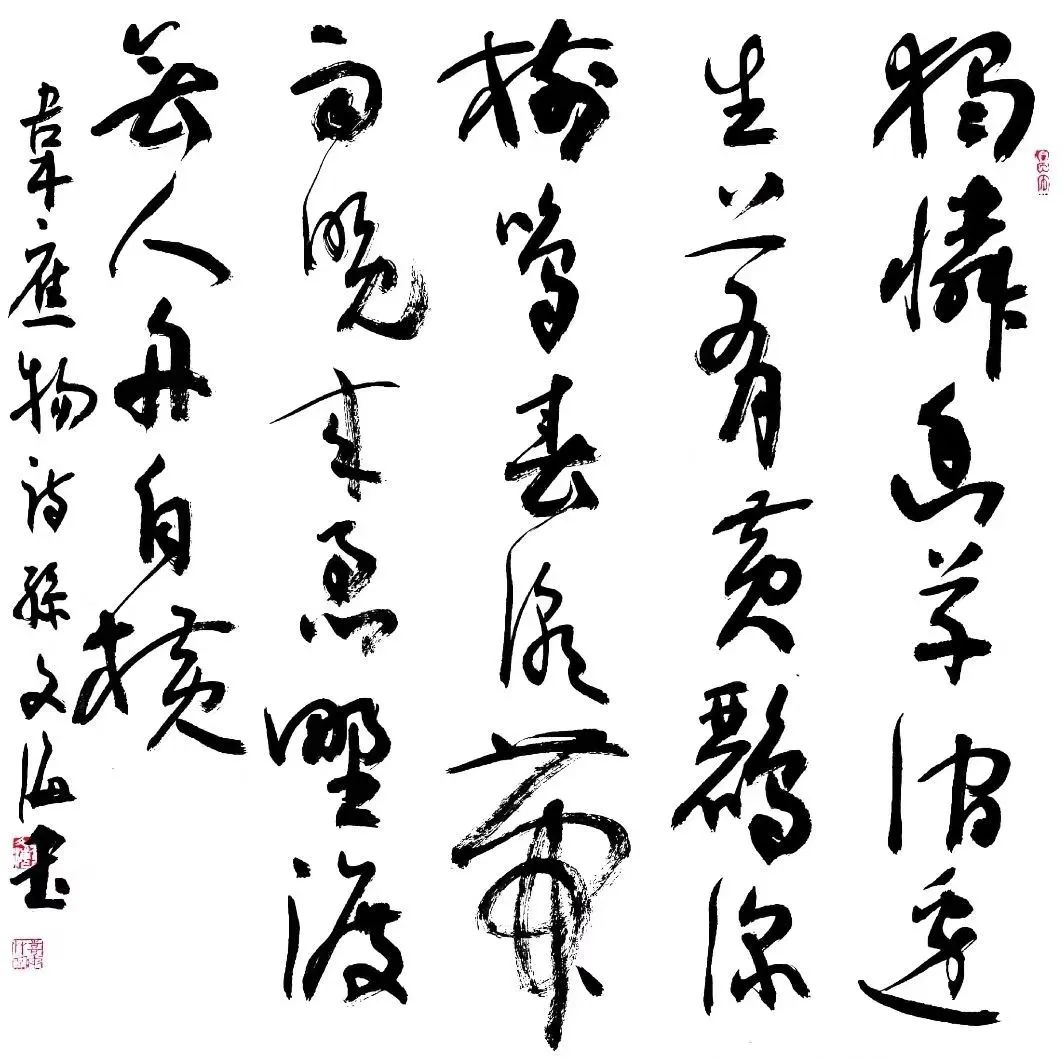 獨憐幽草澗邊
生上有黃鸝深
樹鳴春潮帶
雨晚来急野渡
無人舟自橫
韋應物詩孫文海書